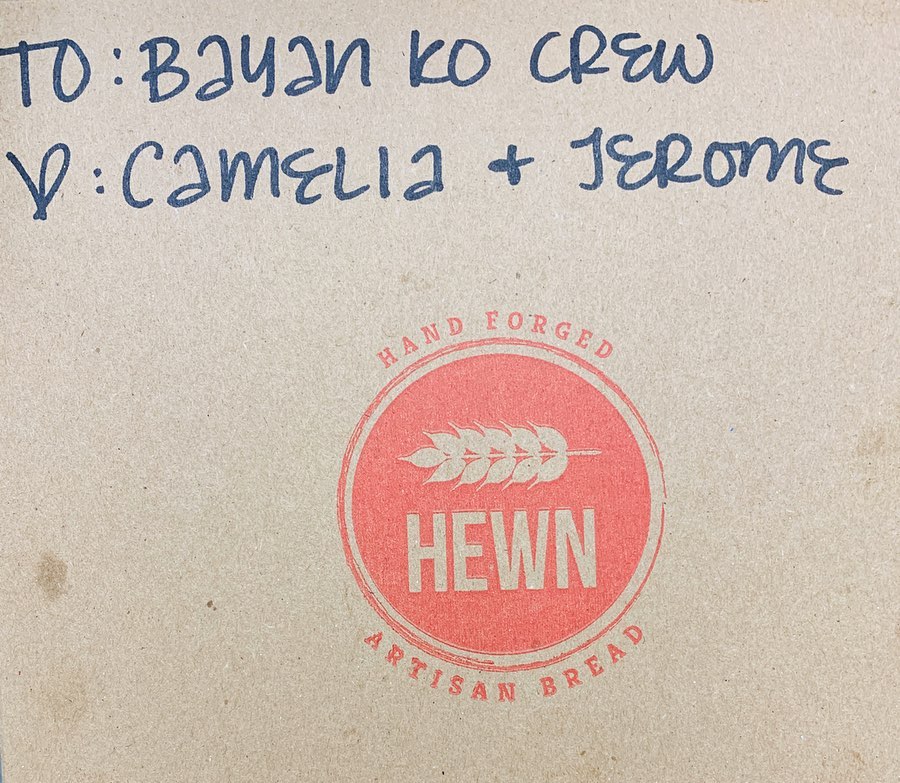 TO: Bayan Ko CREW
♡: CAMELIA + JEROME
HAND FORGED
HEWN
ARTISAN BREAD